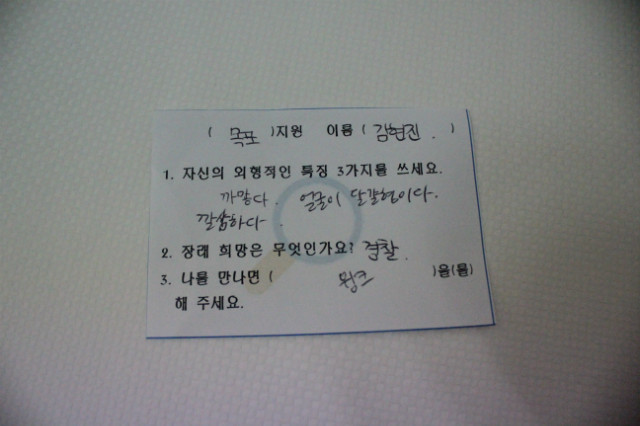 ( 목포 )지원 이름 ( 김현진 . )
1. 자신의 외형적인 특징 3가지를 쓰세요.
까맣다. 얼굴이 달걀형이다.
깔쌈하다.
2. 장래 희망은 무엇인가요? 경찰.
3. 나를 만나면 ( 윙크 )을(를)
해 주세요.